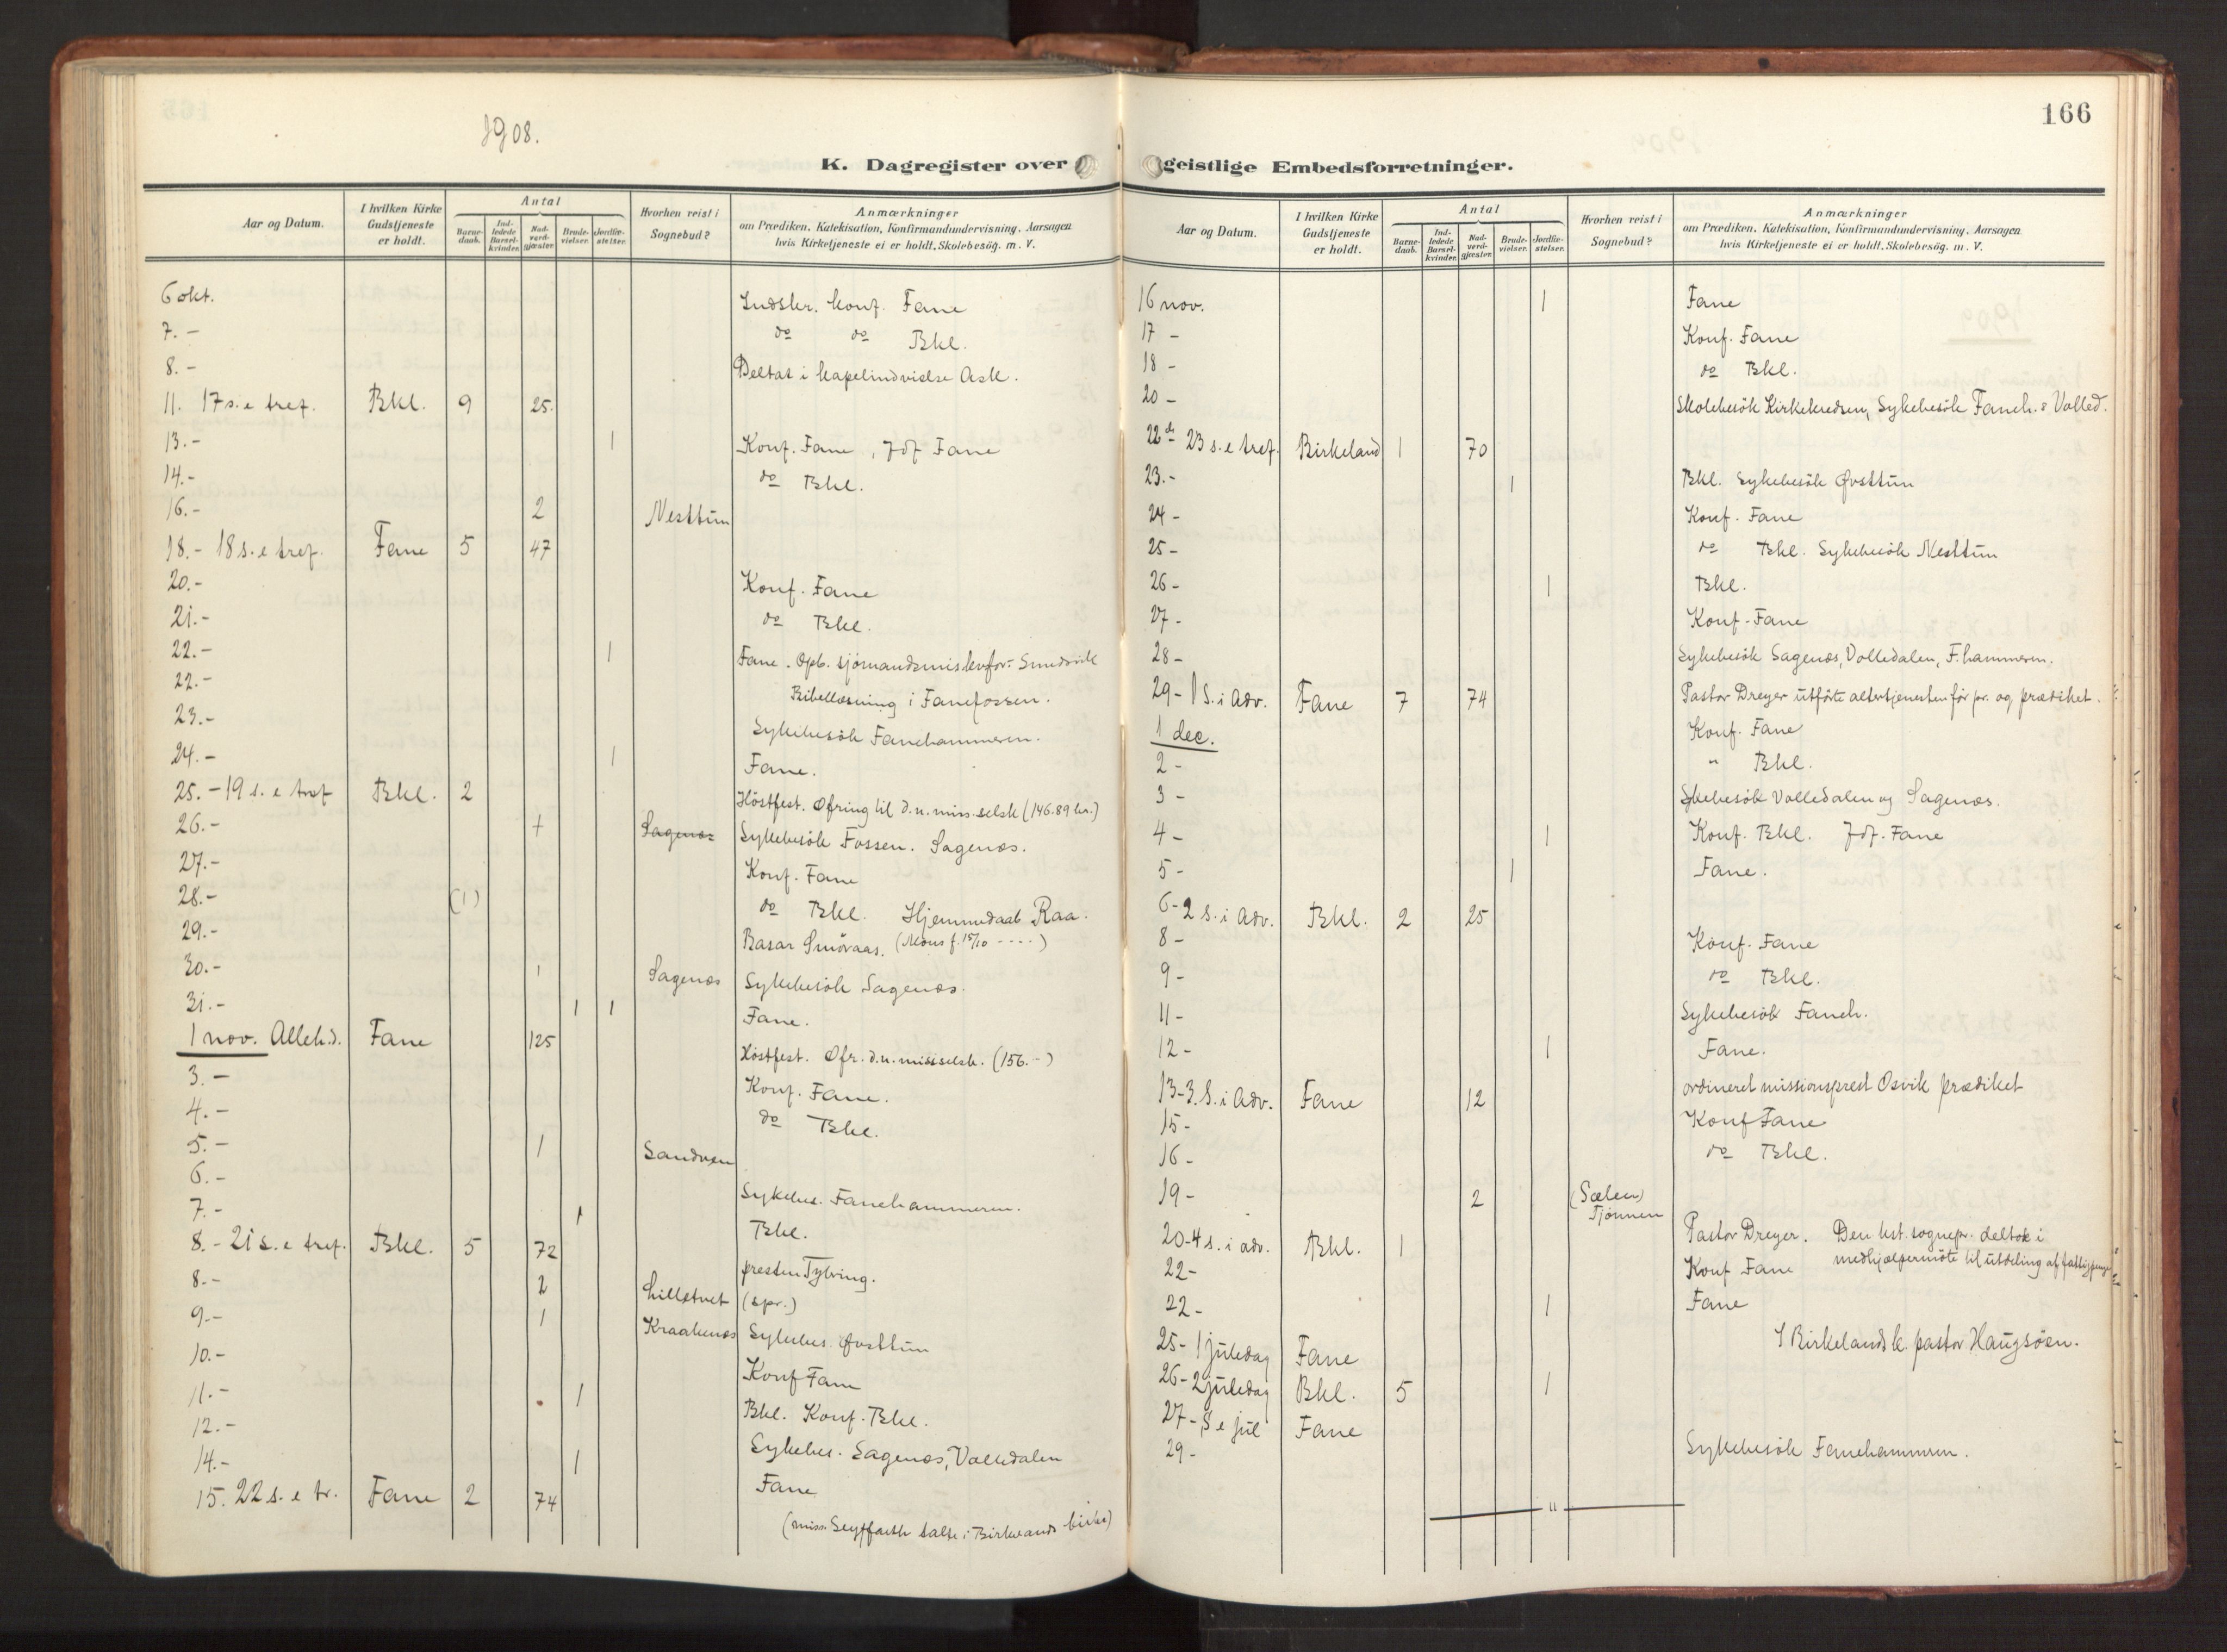 166
1908.
K. Dagregister over geistlige Embedsforretninger.
Aar og Datum. I hvilken Kirke Gudstjeneste er holdt. Antal Barnedaab. Indledede Barselkvinder. Nadverdgjæster. Brudevielser. Jordfæstelser. Hvorhen reist i Sognebud? Anmærkninger om Prædiken, Katekisation, Konfirmandundervisning, Aarsagen hvis Kirketjeneste ei er holdt, Skolebesög, m. V.
6 okt. Indskr. konf. Fane
7. - do do Bkl.
8. - Deltat i kapelindvielse Ask.
11. 17 s. e tref. Bkl. 9 25.
13. - 1 Konf. Fane, Jdf Fane
14. - do Bkl.
16. - 2 Nesttun
18. - 18 s. e tref. Fane 5 47
20. - Konf. Fane
21. - do Bkl.
22. - 1 Fane. Opb. sjömandsmis kvfor. Smedvik
22. - Bibellæsning i Fanefossen.
23. - Sykebesök Fanehammeren.
24. - 1 Fane.
25. - 19 s. e tref Bkl. 2 Höstfest. Ofring til d. n. miss. selsk (146.89 kr.)
26. - Sagenæs Sykebesök Fossen. Sagenæs.
27. - Konf. Fane
28. - (1) do Bkl. Hjemmedaab Raa.
29. - Basar Smöraas. (Mons f. 15/10 - - - -)
30. - 1 Sagenæs Sykebesök Sagenæs.
31. - 1 1 Fane.
1 nov. Alleh. d. Fane 125 Höstfest. Ofr. d. n. misselsk. (156. -)
3. - Konf. Fane.
4. - do Bkl.
5. - 1 Sandven
6. - Sykebes. Fanehammeren.
7. - 1 Bkl.
8. - 21 s. e tref. Bkl. 5 72 presten Tylving.
8. - 2 Lilletvet (spr.)
9. - 1 Kraakenæs Sykebes. Øvsttun
10. - Konf Fane
11. - 1 Bkl. Konf. Bkl.
12. - Sykebes. Sagenæs, Valledalen
14. - 1 Fane
15. 22 s. e tr. Fane 2 74 (miss. Seyffarth talte i Birkelands kirke)
Aar og Datum. I hvilken Kirke Gudstjeneste er holdt. Antal Barnedaab. Indledede Barselkvinder. Nadverdgjæster. Brudevielser. Jordfæstelser. Hvorhen reist i Sognebud? Anmærkninger om Prædiken, Katekisation, Konfirmandundervisning, Aarsagen hvis Kirketjeneste ei er holdt, Skolebesög, m. V.
16 nov. 1 Fane
17 - Konf. Fane
18 - do Bkl.
20 - Skolebesök Kirkekredsen, Sykebesök Faneh. & Valled.
22 de 23 s. e tref. Birkeland 1 70
23. - 1 Bkl. Sykebesök Øvsttun
24 - Konf. Fane
25 - do Bkl. Sykebesök Nesttun
26 - 1 Bkl.
27 - Konf - Fane
28 - Sykebesök Sagenæs, Volledalen, F. hammeren.
29 - 1 S. i Adv. Fane 7 74 Pastor Dreyer utförte altertjenesten för pr. og prædiket.
1 dec. Konf. Fane
2 - " Bkl.
3 - Sykebesök Volledalen og Sagenæs.
4 - 1 Konf. Bkl. Jdf. Fane
5 - 1 Fane.
6 - 2 S. i Adv. Bkl. 2 25
8 - Konf. Fane
9 - do Bkl.
11 - Sykebesök Faneh.
12 - 1 Fane.
13 - 3. S. i Adv. Fane 12 ordineret missionsprest Osvik prædiket
15 - Konf Fane
16 - do Bkl.
19 - 2 (Sælen) Tjönnen
20 - 4 s. i adv. Bkl. 1 Pastor Dreyer. Den kst. sognepr. deltok i
medhjælpermöte til utdeling af fattigpenge
22 - Konf Fane
22 - 1 Fane
25 - 1 juledag Fane I Birkelands k. pastor Haugsöen.
26 - 2 juledag Bkl. 5 1
27 - S e jul Fane
29 - Sykebesök Fanehammeren.